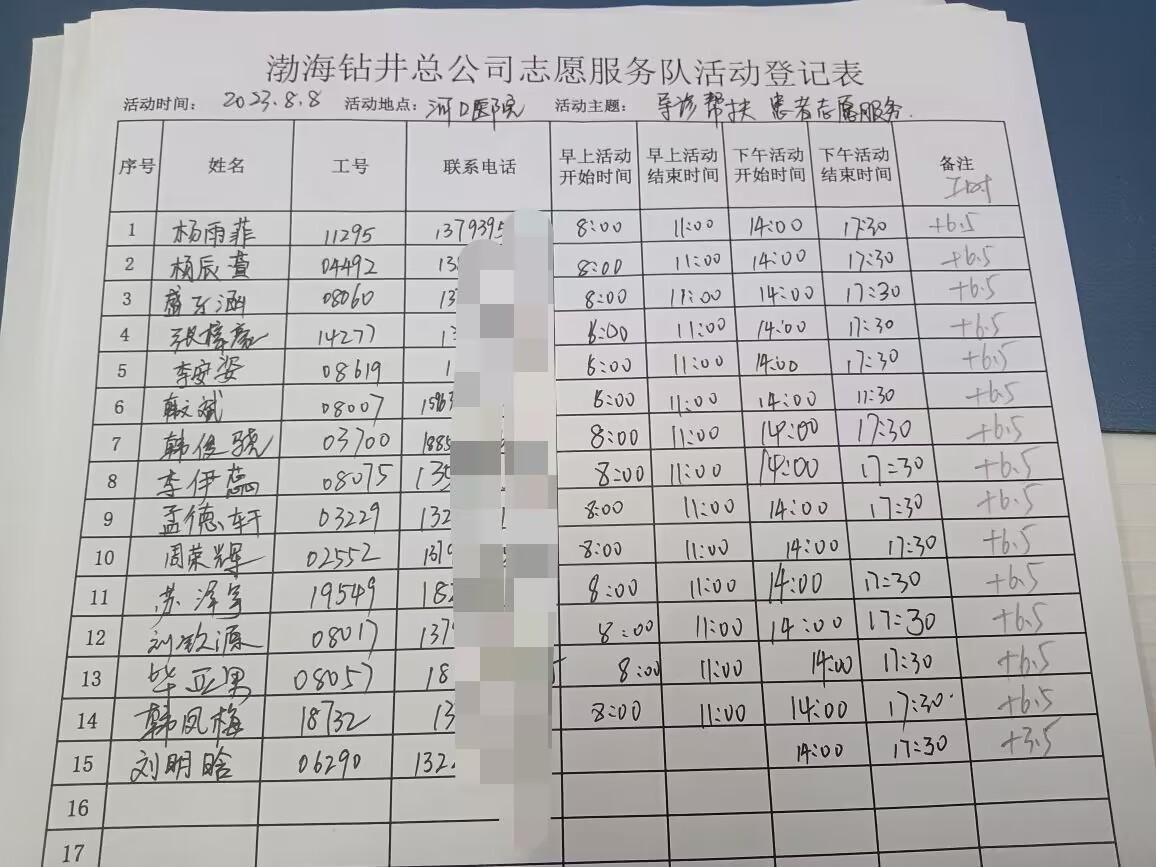 渤海钻井总公司志愿服务队活动登记表
活动时间: 2023.8.8 活动地点: 河口医院 活动主题: 导诊帮扶 患者志愿服务.
序号 姓名 工号 联系电话 早上活动开始时间 早上活动结束时间 下午活动开始时间 下午活动结束时间 备注
1 杨雨菲 11295 1379395 8:00 11:00 14:00 17:30 +6.5
2 杨辰萱 04492 13 8:00 11:00 14:00 17:30 +6.5
3 08060 13 8:00 11:00 14:00 17:30 +6.5
4 张梓豪 14277 1 8:00 11:00 14:00 17:30 +6.5
5 李安姿 08619 1 8:00 11:00 14:00 17:30 +6.5
6 韩文斌 08007 1 8:00 11:00 14:00 11:30 +6.5
7 韩俊骁 03700 1885 8:00 11:00 14:00 17:30 +6.5
8 李伊蕊 08075 13 8:00 11:00 14:00 17:30 +6.5
9 孟德轩 03229 132 8:00 11:00 14:00 17:30 +6.5
10 周荣辉 02552 1379 8:00 11:00 14:00 17:30 +6.5
11 苏泽宇 19549 18 8:00 11:00 14:00 17:30 +6.5
12 刘钦源 08017 137 8:00 11:00 14:00 17:30 +6.5
13 毕亚男 08057 18 8:00 11:00 14:00 17:30 +6.5
14 韩凤梅 18732 13 8:00 11:00 14:00 17:30 +6.5
15 刘明晗 06290 132 14:00 17:30 +3.5
16
17